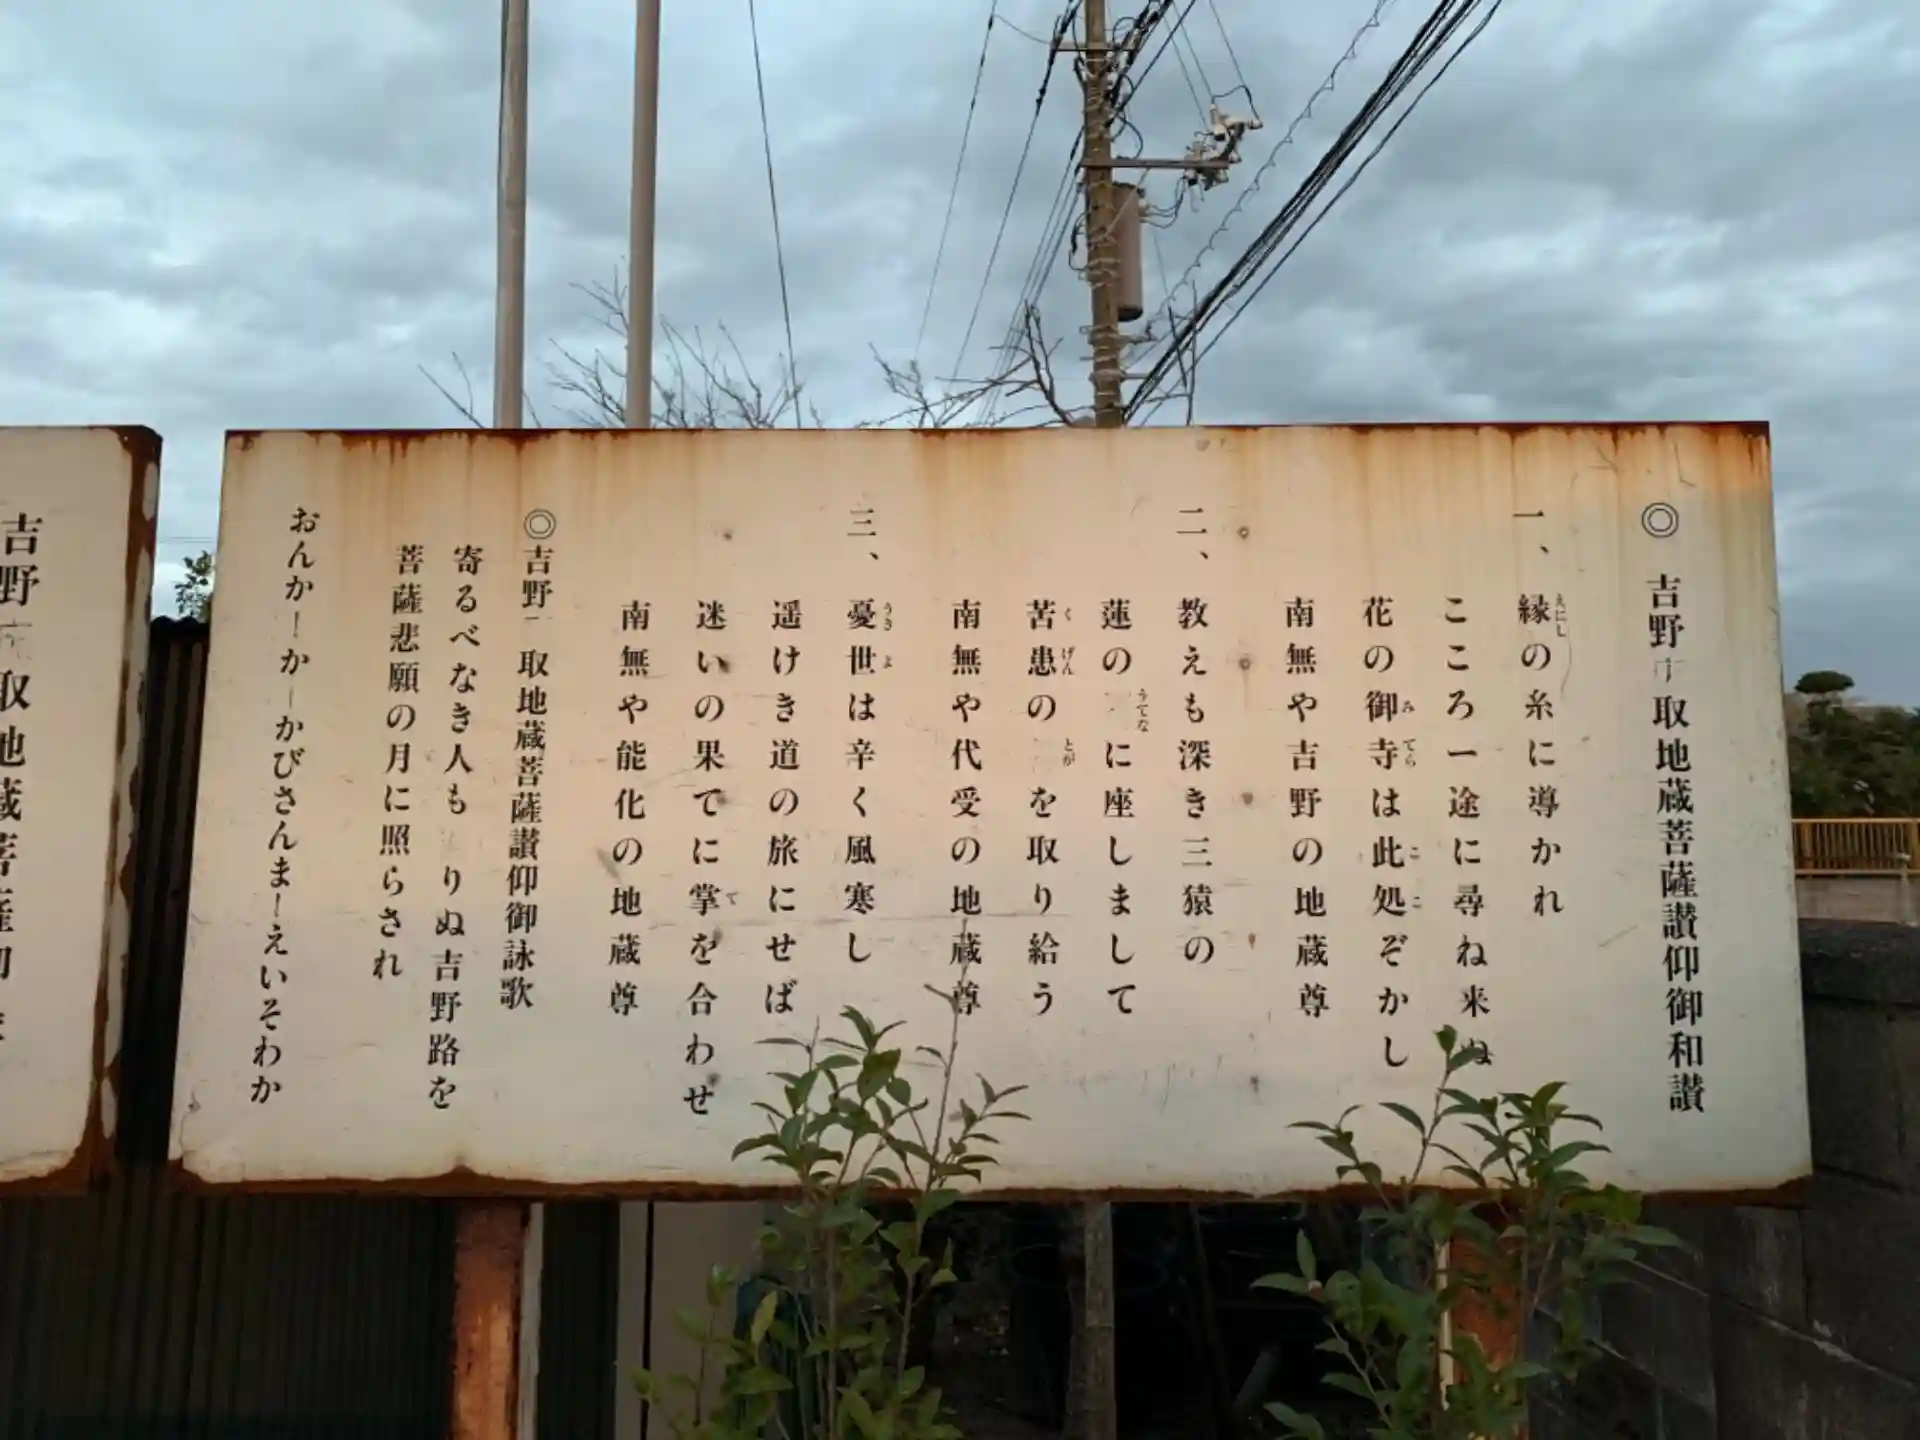 ◎ 吉野 取地蔵菩薩讃仰御和讃
一、縁の糸に導かれ
えにし
こころ一途に尋ね来ぬ
花の御寺は此処ぞかし
み てら こ こ
南無や吉野の地蔵尊
二、教えも深き三猿の
蓮の に座しまして
うてな
苦患の を取り給う
く げん とが
南無や代受の地蔵尊
三、憂世は辛く風寒し
うき よ
遥けき道の旅にせば
迷いの果てに掌を合わせ
て
南無や能化の地蔵尊
◎吉野 取地蔵菩薩讃仰御詠歌
寄るべなき人も りぬ吉野路を
菩薩悲願の月に照らされ
おんかーかーかびさんまーえいそわか
吉野 取地蔵菩薩